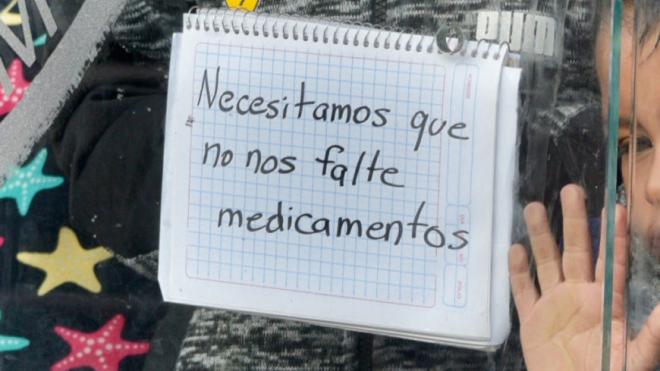 Necesitamos que
no nos falte
medicamentos